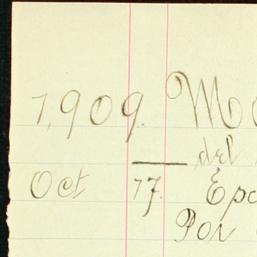 1909. Mo
drl
Oct 17. Epo
Por